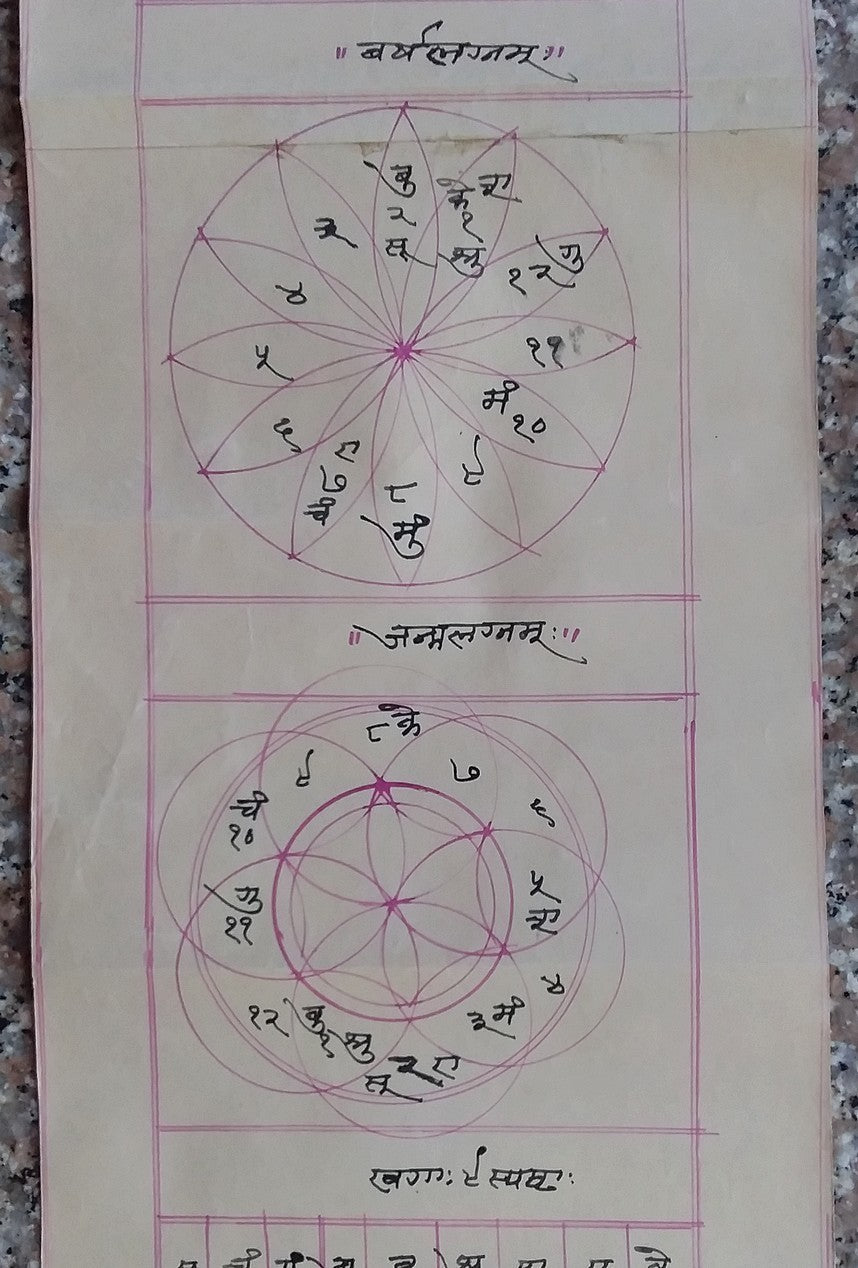 ॥ वर्षलग्नम् ः॥
बु
२
सू
के श
१
शु
३
गु
१२
४
११
५
मं
१०
६
९
रा
७
चं
८
मुं
॥ जन्मलग्नम् ः॥
८ के
९
७
चं
१०
६
गु
११
५
श
४
१२
बु
१ शु
३ मं
सू २ रा